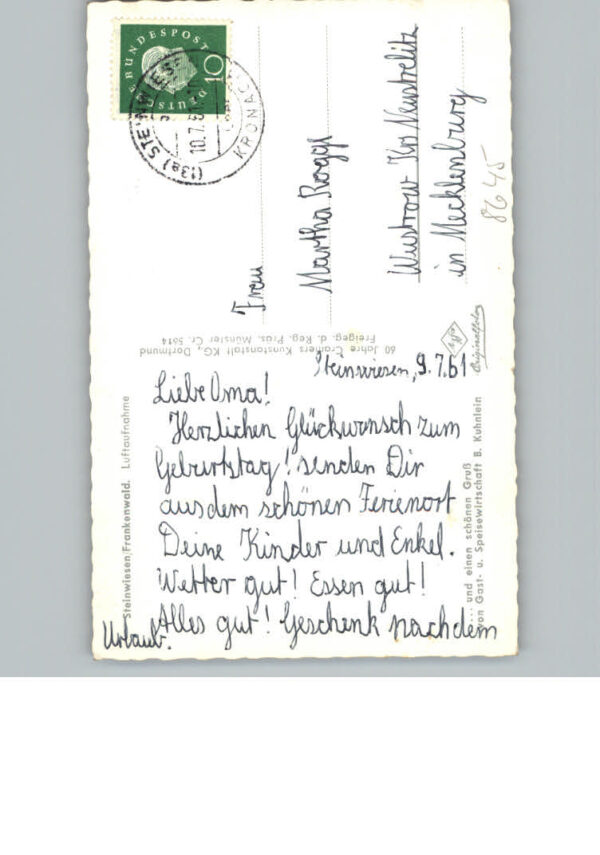 DEUTSCHE BUNDESPOST
10
(13a) STEINWIESEN
10.7.61
KRONACH
Frau
Martha Rogge
Wustrow Krs Neustrelitz
in Mecklenburg
8645
60 Jahre Cramers Kunstanstalt KG, Dortmund
Freigeg. d. Reg. Präs. Münster Cr. 5614
Originalfoto
Steinwiesen/Frankenwald. Luftaufnahme
Steinwiesen, 9.7.61
Liebe Oma!
Herzlichen Glückwunsch zum
Geburtstag! senden Dir
aus dem schönen Ferienort
Deine Kinder und Enkel.
Wetter gut! Essen gut!
Alles gut! Geschenk nach dem
Urlaub.
... und einen schönen Gruß
von Gast- u. Speisewirtschaft B. Kuhnlein